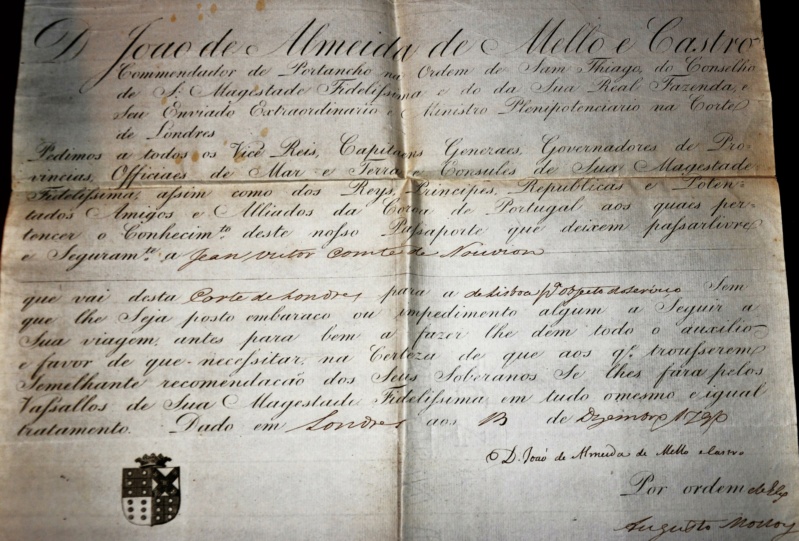 D. Joao de Almeida de Mello e Castro
Commendador de Portancho na Ordem de Sam Thiago, do Conselho
de S. Magestade Fidelissima e do da Sua Real Fazenda, e
Seu Enviado Extraordinario e Ministro Plenipotenciario na Corte
de Londres
Pedimos a todos os Vice Reis, Capitaens Generaes, Governadores de Pro-
vincias, Officiaes de Mar e Terra e Consules de Sua Magestade
Fidelissima, assim como dos Reys, Principes, Republicas e Poten-
tados Amigos e Alliados da Coroa de Portugal aos quaes per-
tencer o Conhecimto deste nosso Passaporte que deixem passar livre
e Seguramte a Jean Victor Comte de Nouvion
que vai desta Corte de Londres para a de Lisboa Sem
que lhe Seja posto embaraco ou impedimento algum a Seguir a
Sua viagem, antes para bem a fazer lhe dem todo o auxilio
e favor de que necessitar, na Certeza de que aos qe trousserem
Semelhante recomendacão dos Seus Soberanos Se lhes fara pelos
Vassallos de Sua Magestade Fidelissima em tudo o mesmo e igual
tratamento. Dado em Londres aos 13 de Dezembro
D. Joaõ de Almeida de Mello e Castro
Por ordem
Augusto